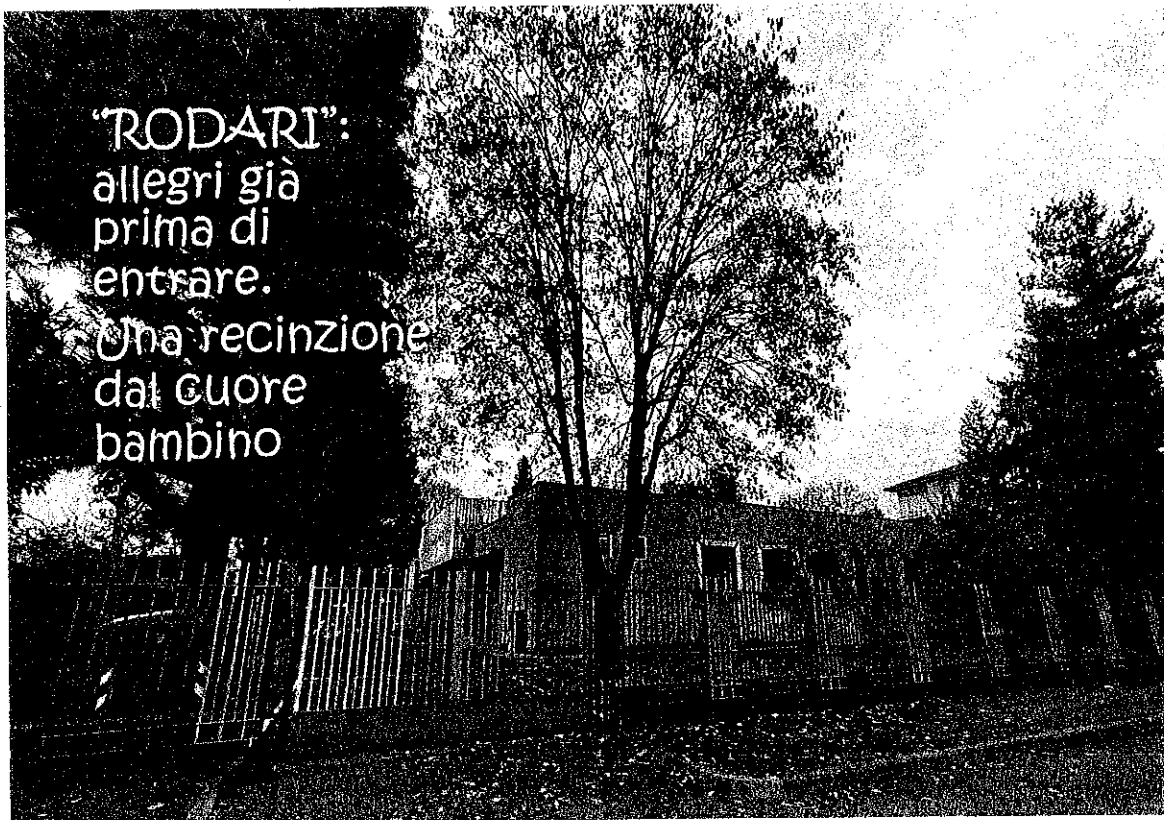 "RODARI":
allegri già
prima di
entrare.
Una recinzione
dal cuore
bambino